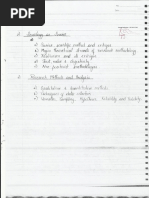 1) Sociology as Science
a) Science, scientific method and critique
b) Major theoretical strands of research methodology
c) Positivism and its critique
d) Fact value & objectivity
e) Non positivist methodologies
2) Research Methods and Analysis.
a) Qualitative & quantitative methods
b) Techniques of data collection
c) Variable, Sampling, Hypothesis, Reliability and Validity